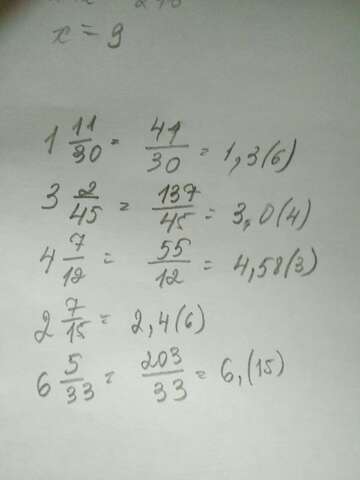 x = 9
1 11/30 = 41/30 = 1,3(6)
3 2/45 = 137/45 = 3,0(4)
4 7/12 = 55/12 = 4,58(3)
2 7/15 = 2,4(6)
6 5/33 = 203/33 = 6,(15)